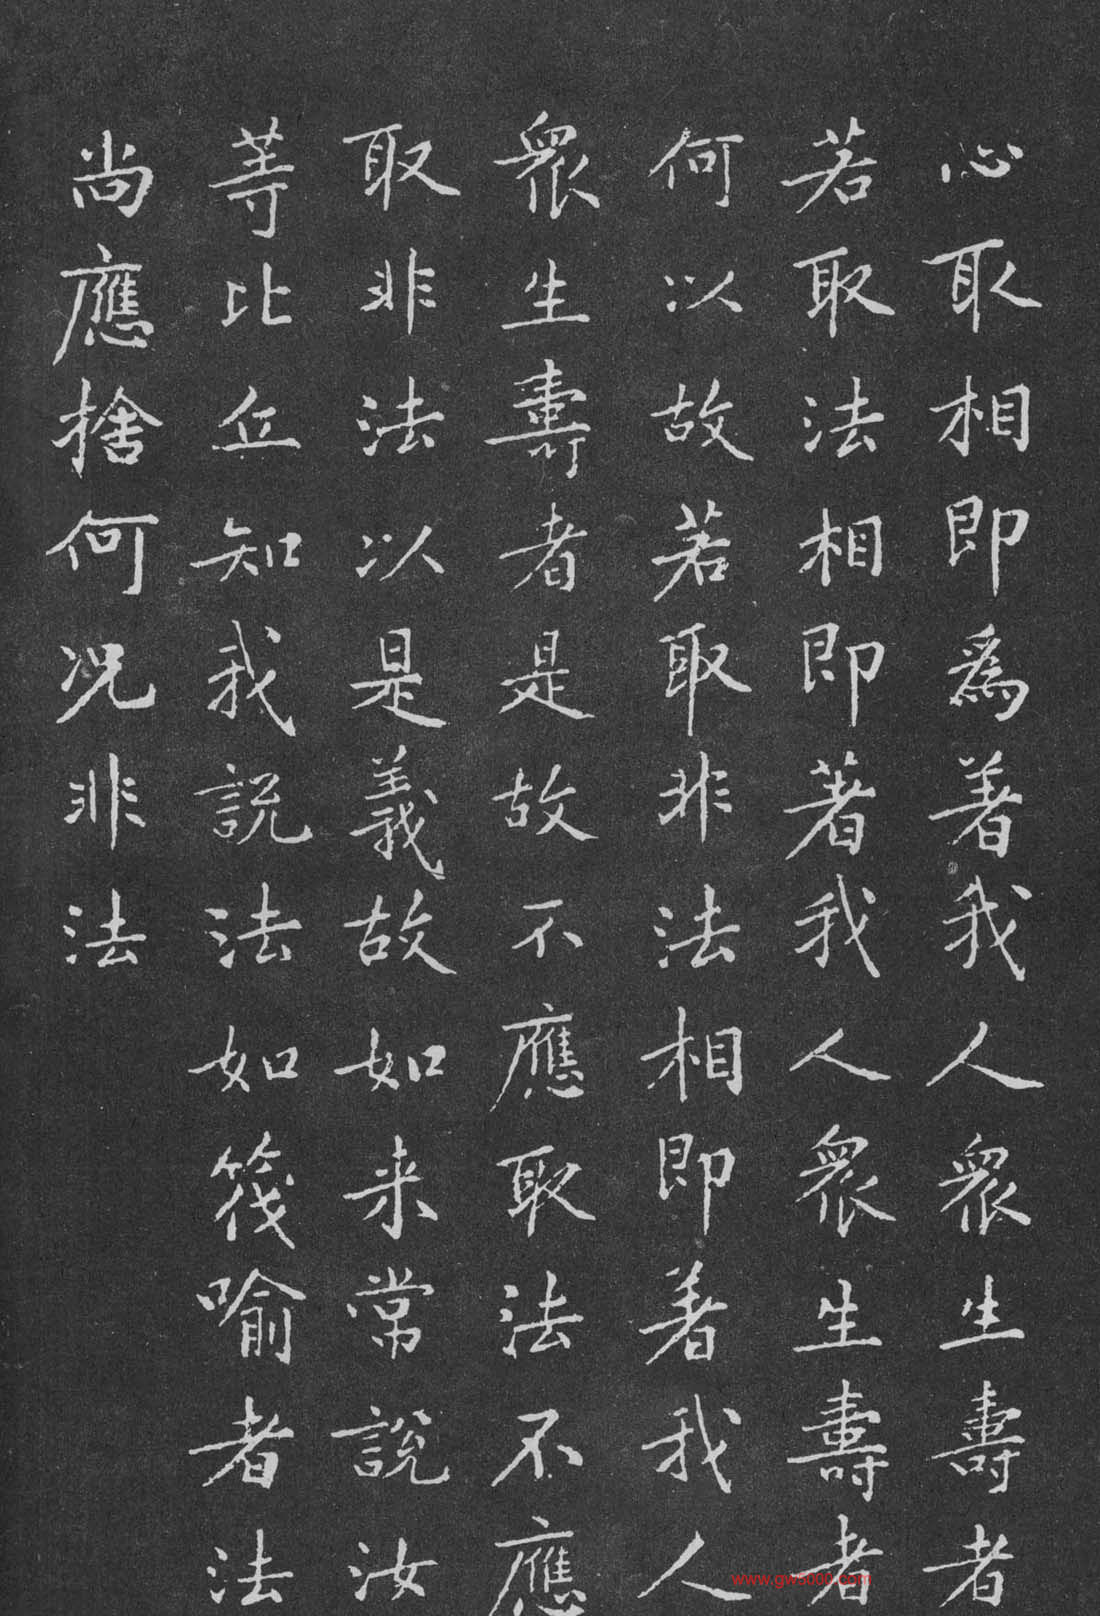 心取相即為著我人衆生壽者
若取法相即著我人衆生壽者
何以故若取非法相即著我人
衆生壽者是故不應取法不應
取非法以是義故如来常說汝
等比丘知我說法如筏喻者法
尚應捨何况非法
www.gw5000.com